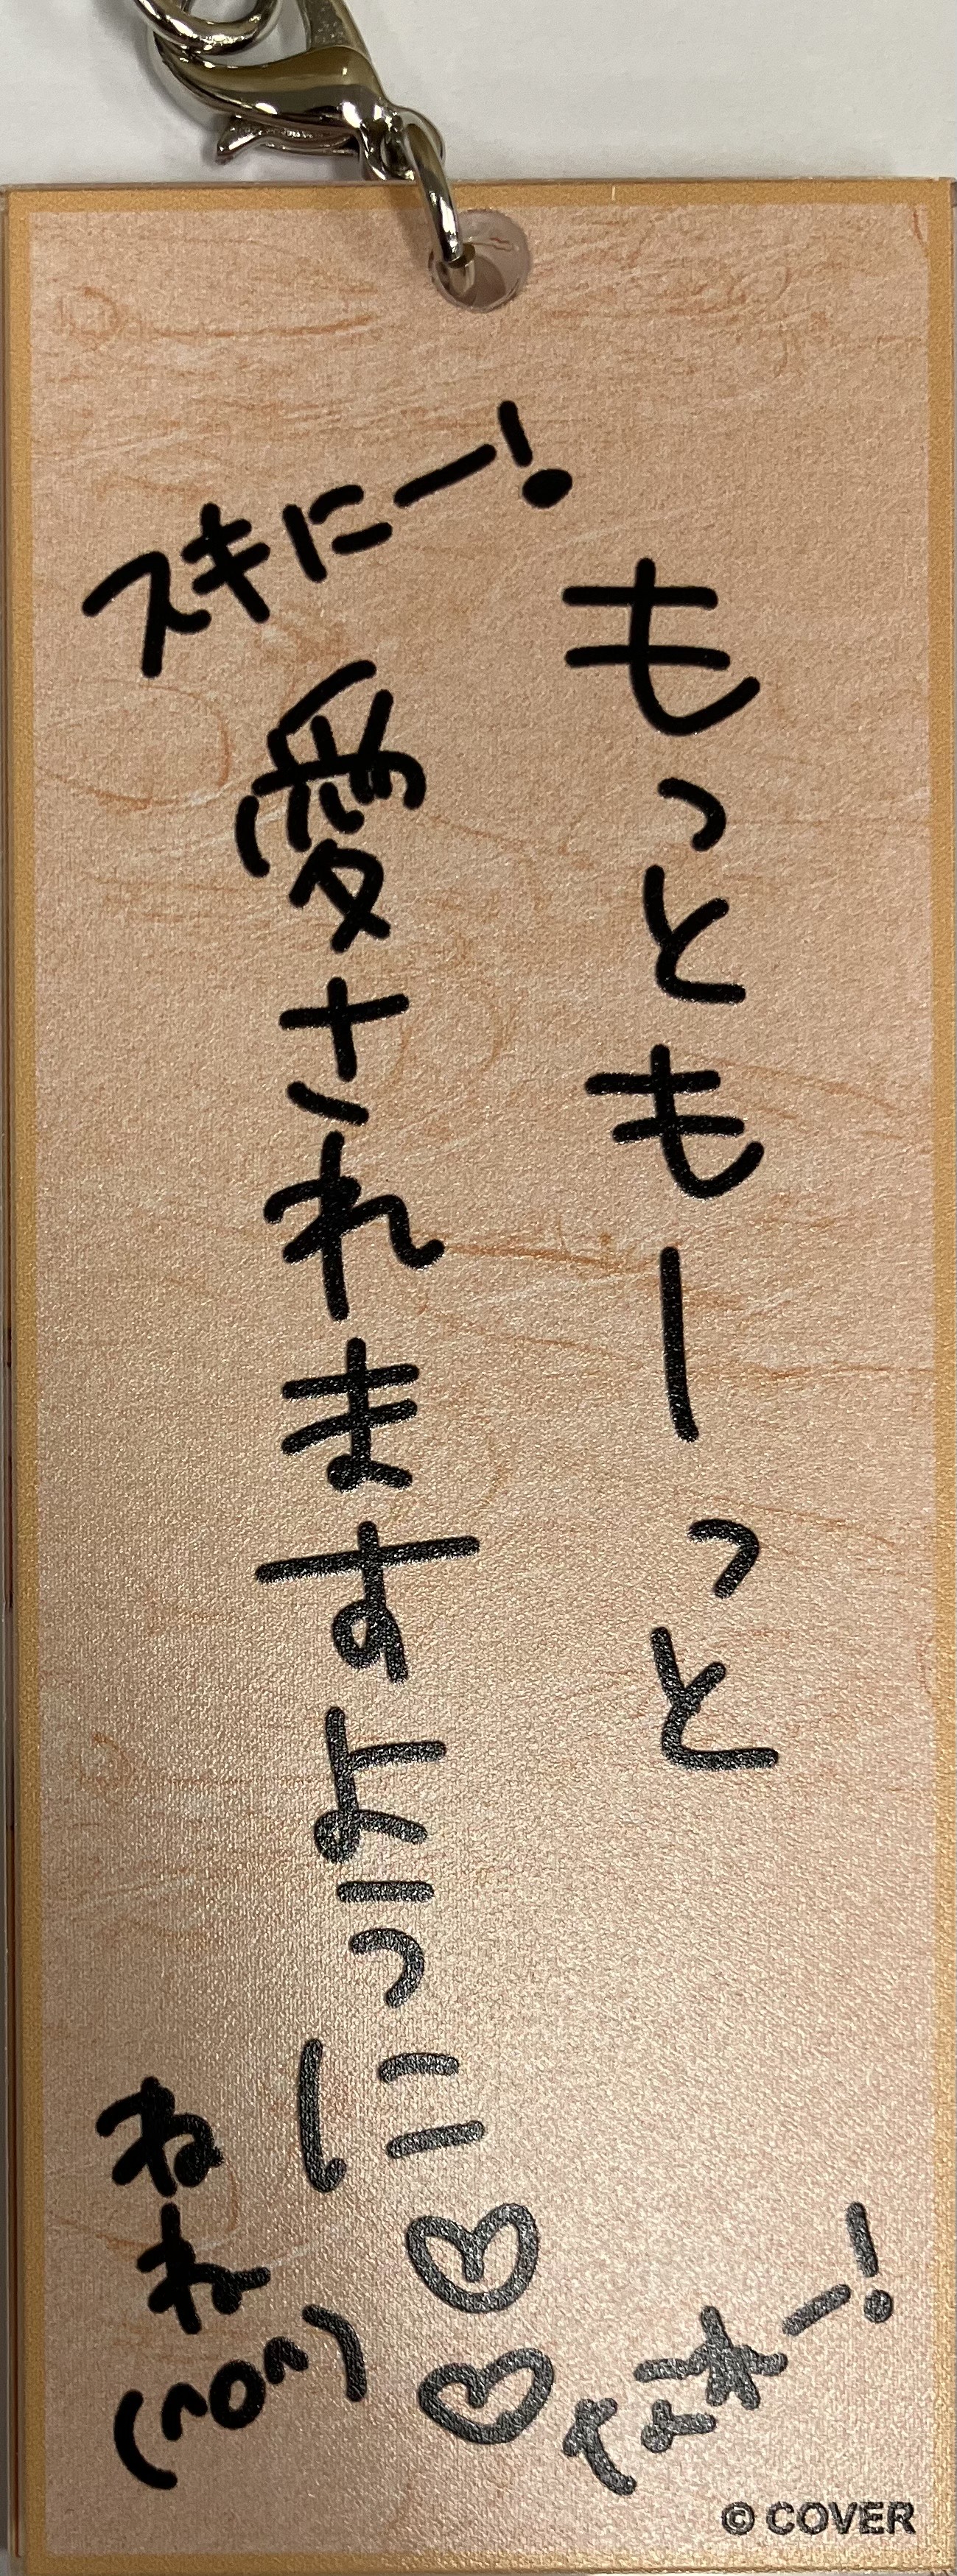 スキにー!
もっともーっと
愛されますように♡♡
なれー!
ねね
(^o^)
© COVER